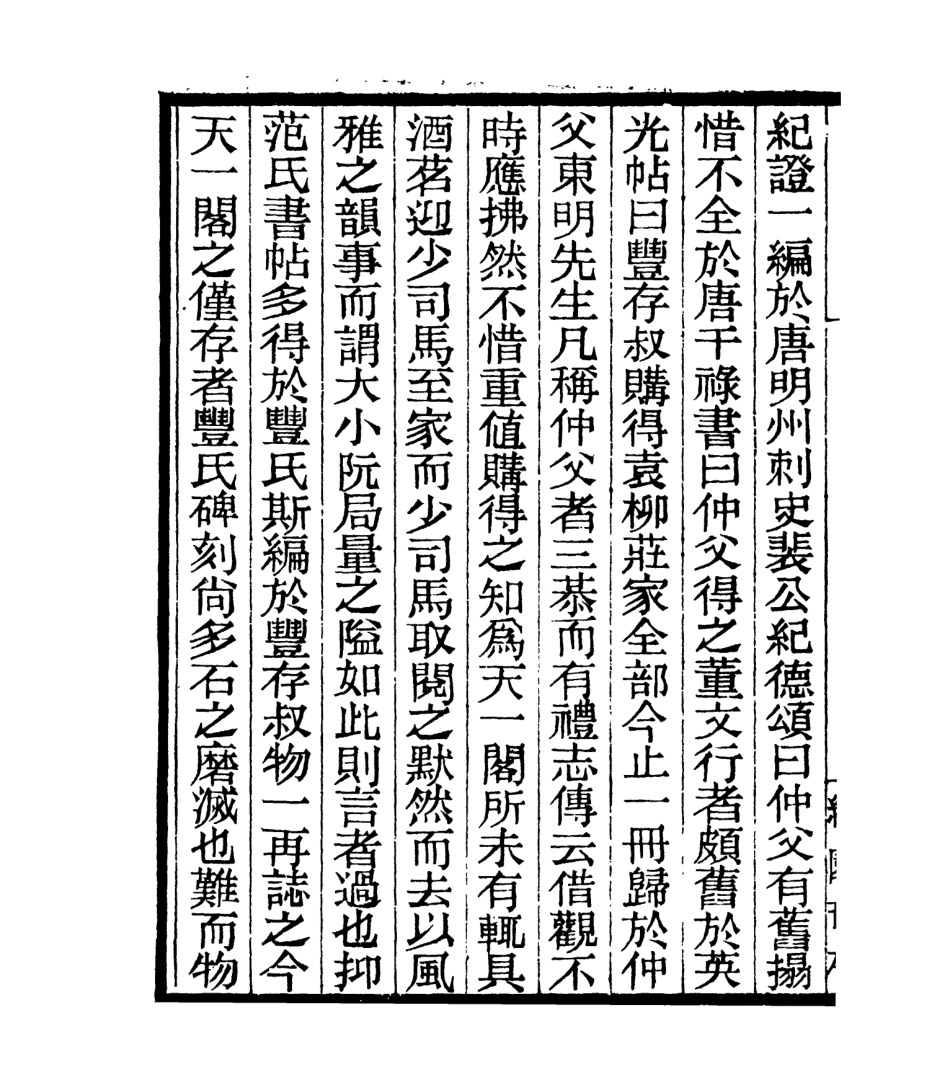 紀證一編於唐明州刺史裴公紀德頌曰仲父有舊搨
惜不全於唐干祿書曰仲父得之董文行者頗舊於英
光帖曰豐存叔購得袁柳莊家全部今止一冊歸於仲
父東明先生凡稱仲父者三㳟而有禮志傳云借觀不
時應拂然不惜重值購得之知為天一閣所未有輒具
酒茗迎少司馬至家而少司馬取閱之默然而去以風
雅之韻事而謂大小阮局量之隘如此則言者過也抑
范氏書帖多得於豐氏斯編於豐存叔物一再誌之今
天一閣之僅存者豐氏碑刻尙多石之磨滅也難而物